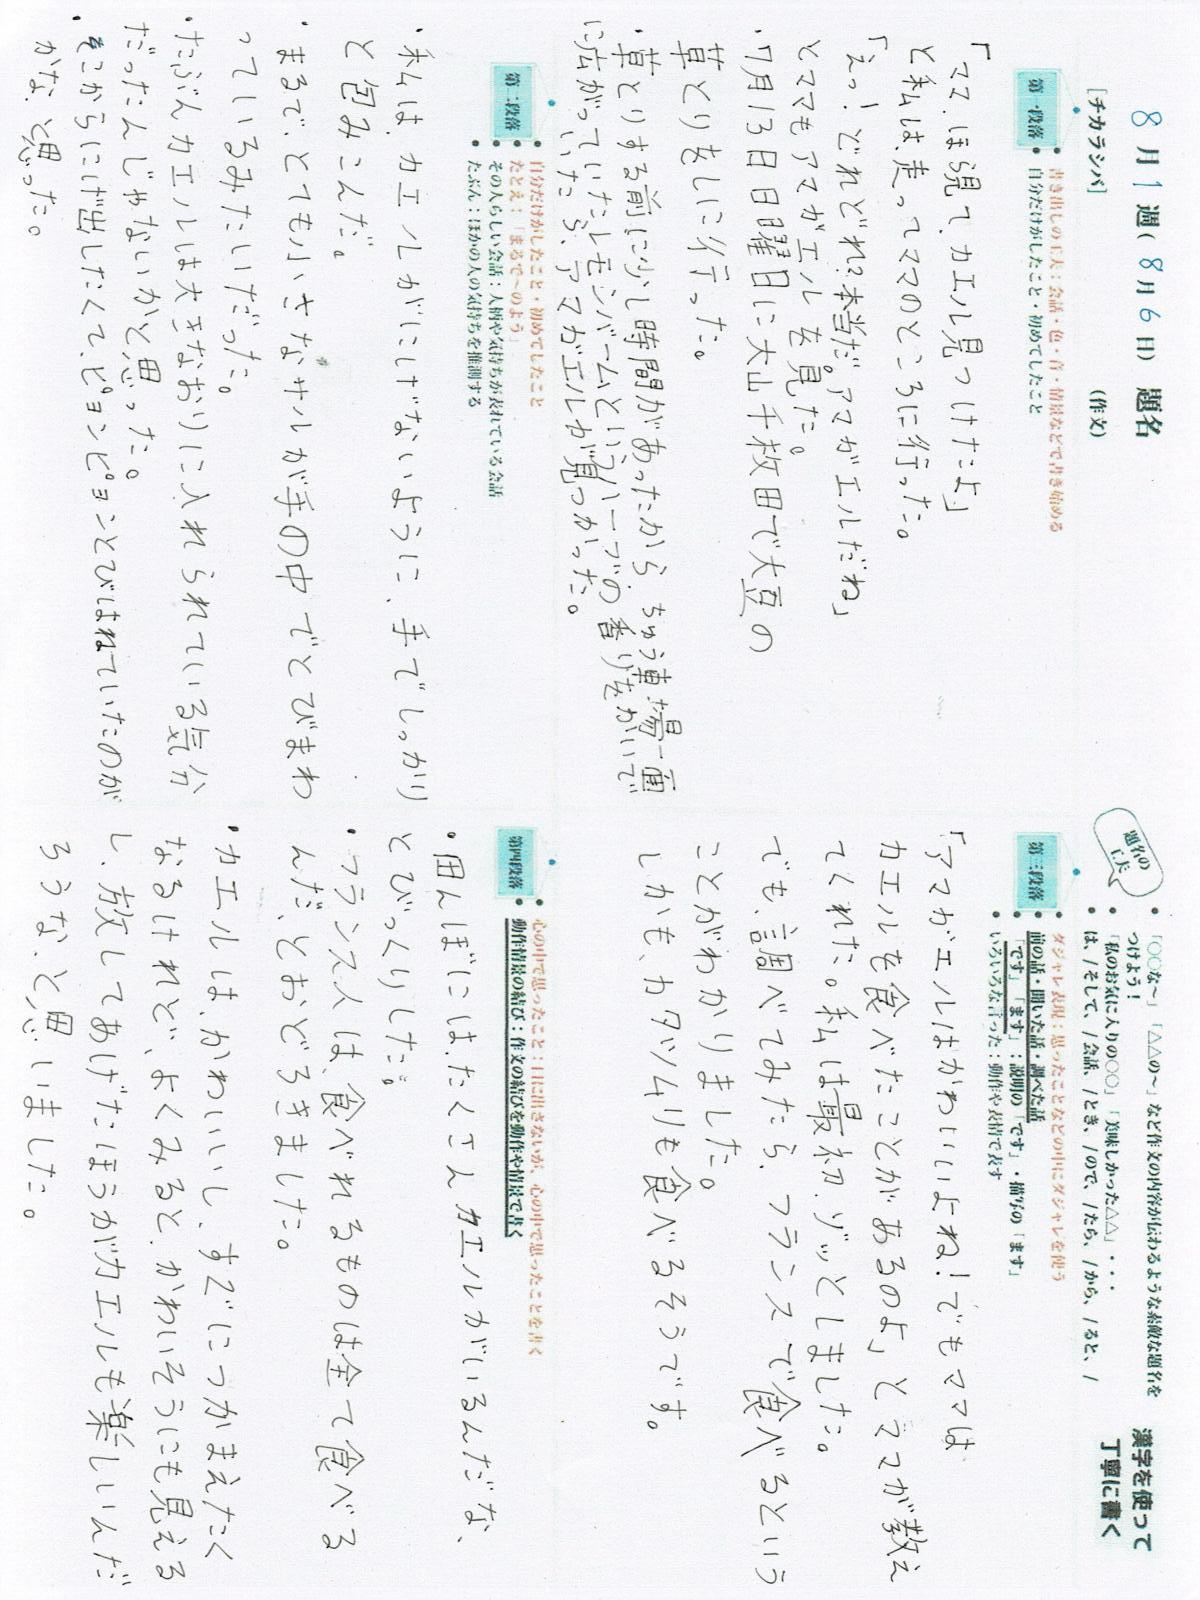 8月1週(8月6日) 題名
[チカラシバ] (作文)
題名の工夫
「○○な～」「△△の～」など作文の内容が伝わるような素敵な題名を
つけよう！
「私のお気に入りの○○」「美味しかった△△」・・・
は、/そして、/会話、/とき、/ので、/たら、/から、/ると、/
漢字を使って
丁寧に書く
第一段落
書き出しの工夫：会話・色・音・情景などで書き始める
自分だけがしたこと・初めてしたこと
「ママ、ほら見て、カエル見つけたよ」
と私は、走ってママのところに行った。
「えっ！どれどれ？本当だ。アマガエルだね」
とママもアマガエルを見た。
・7月13日日曜日に大山千枚田で大豆の
草とりをしに行った。
・草とりする前に少し時間があったから、ちゅう車場一面
に広がっていたレモンバームというハーブの香りをかいで
いたら、アマガエルが見つかった。
第二段落
自分だけがしたこと・初めてしたこと
たとえ：「まるで～のよう」
その人らしい会話：人柄や気持ちが表れている会話
たぶん：ほかの人の気持ちを推測する
・私は、カエルがにげないように、手でしっかり
と包みこんだ。
・まるで、とても小さなサルが手の中でとびまわ
っているみたいだった。
・たぶんカエルは大きなおりに入れられている気分
だったんじゃないかと思った。
・そこからにげ出したくて、ピョンピョンとびはねていたのが
かな、と思った。
第三段落
ダジャレ表現：思ったことなどの中にダジャレを使う
前の話・聞いた話・調べた話
「です」「ます」：説明の「です」・描写の「ます」
いろいろな言った：動作や表情で表す
「アマガエルはかわいいよね！でもママは
カエルを食べたことがあるのよ」とママが教え
てくれた。私は最初、ゾッとしました。
でも、調べてみたら、フランスで食べるという
ことがわかりました。
しかも、カタツムリも食べるそうです。
第四段落
心の中で思ったこと：口に出さないが、心の中で思ったことを書く
動作情景の結び：作文の結びを動作や情景で書く
・田んぼには、たくさんカエルがいるんだな、
とびっくりした。
・フランス人は、食べれるものは全て食べる
んだ、とおどろきました。
・カエルは、かわいいし、すぐにつかまえたく
なるけれど、よくみると、かわいそうにも見える
し、放してあげたほうがカエルも楽しいんだ
ろうな、と思いました。